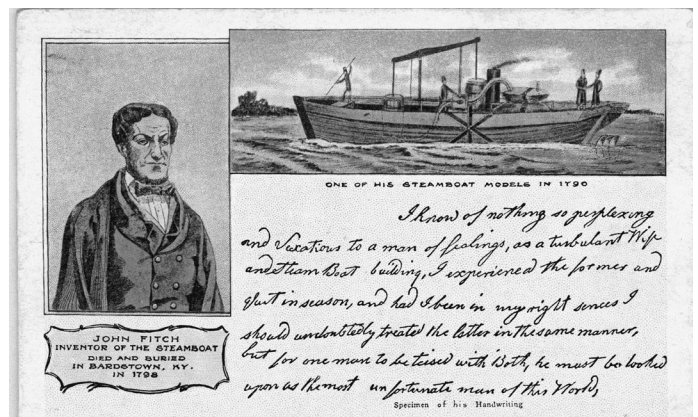 ONE OF HIS STEAMBOAT MODELS IN 1790
I know of nothing so perplexing
and Vexatious to a man of fealings, as a turbulant Wife
and Steam Boat building, I experienced the former and
quit in season, and had I been in my right sences I
should undoubtedly treated the latter in the same manner,
but for one man to be teised with Both, he must be looked
upon as the most unfortunate man of this World,
Specimen of his Handwriting
JOHN FITCH
INVENTOR OF THE STEAMBOAT
DIED AND BURIED
IN BARDSTOWN, KY.
IN 1798